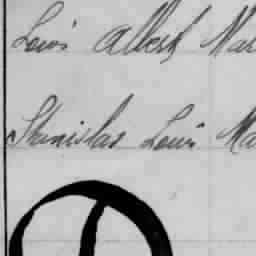 Lewis Albert Mar
Stanislas Lewis Ma